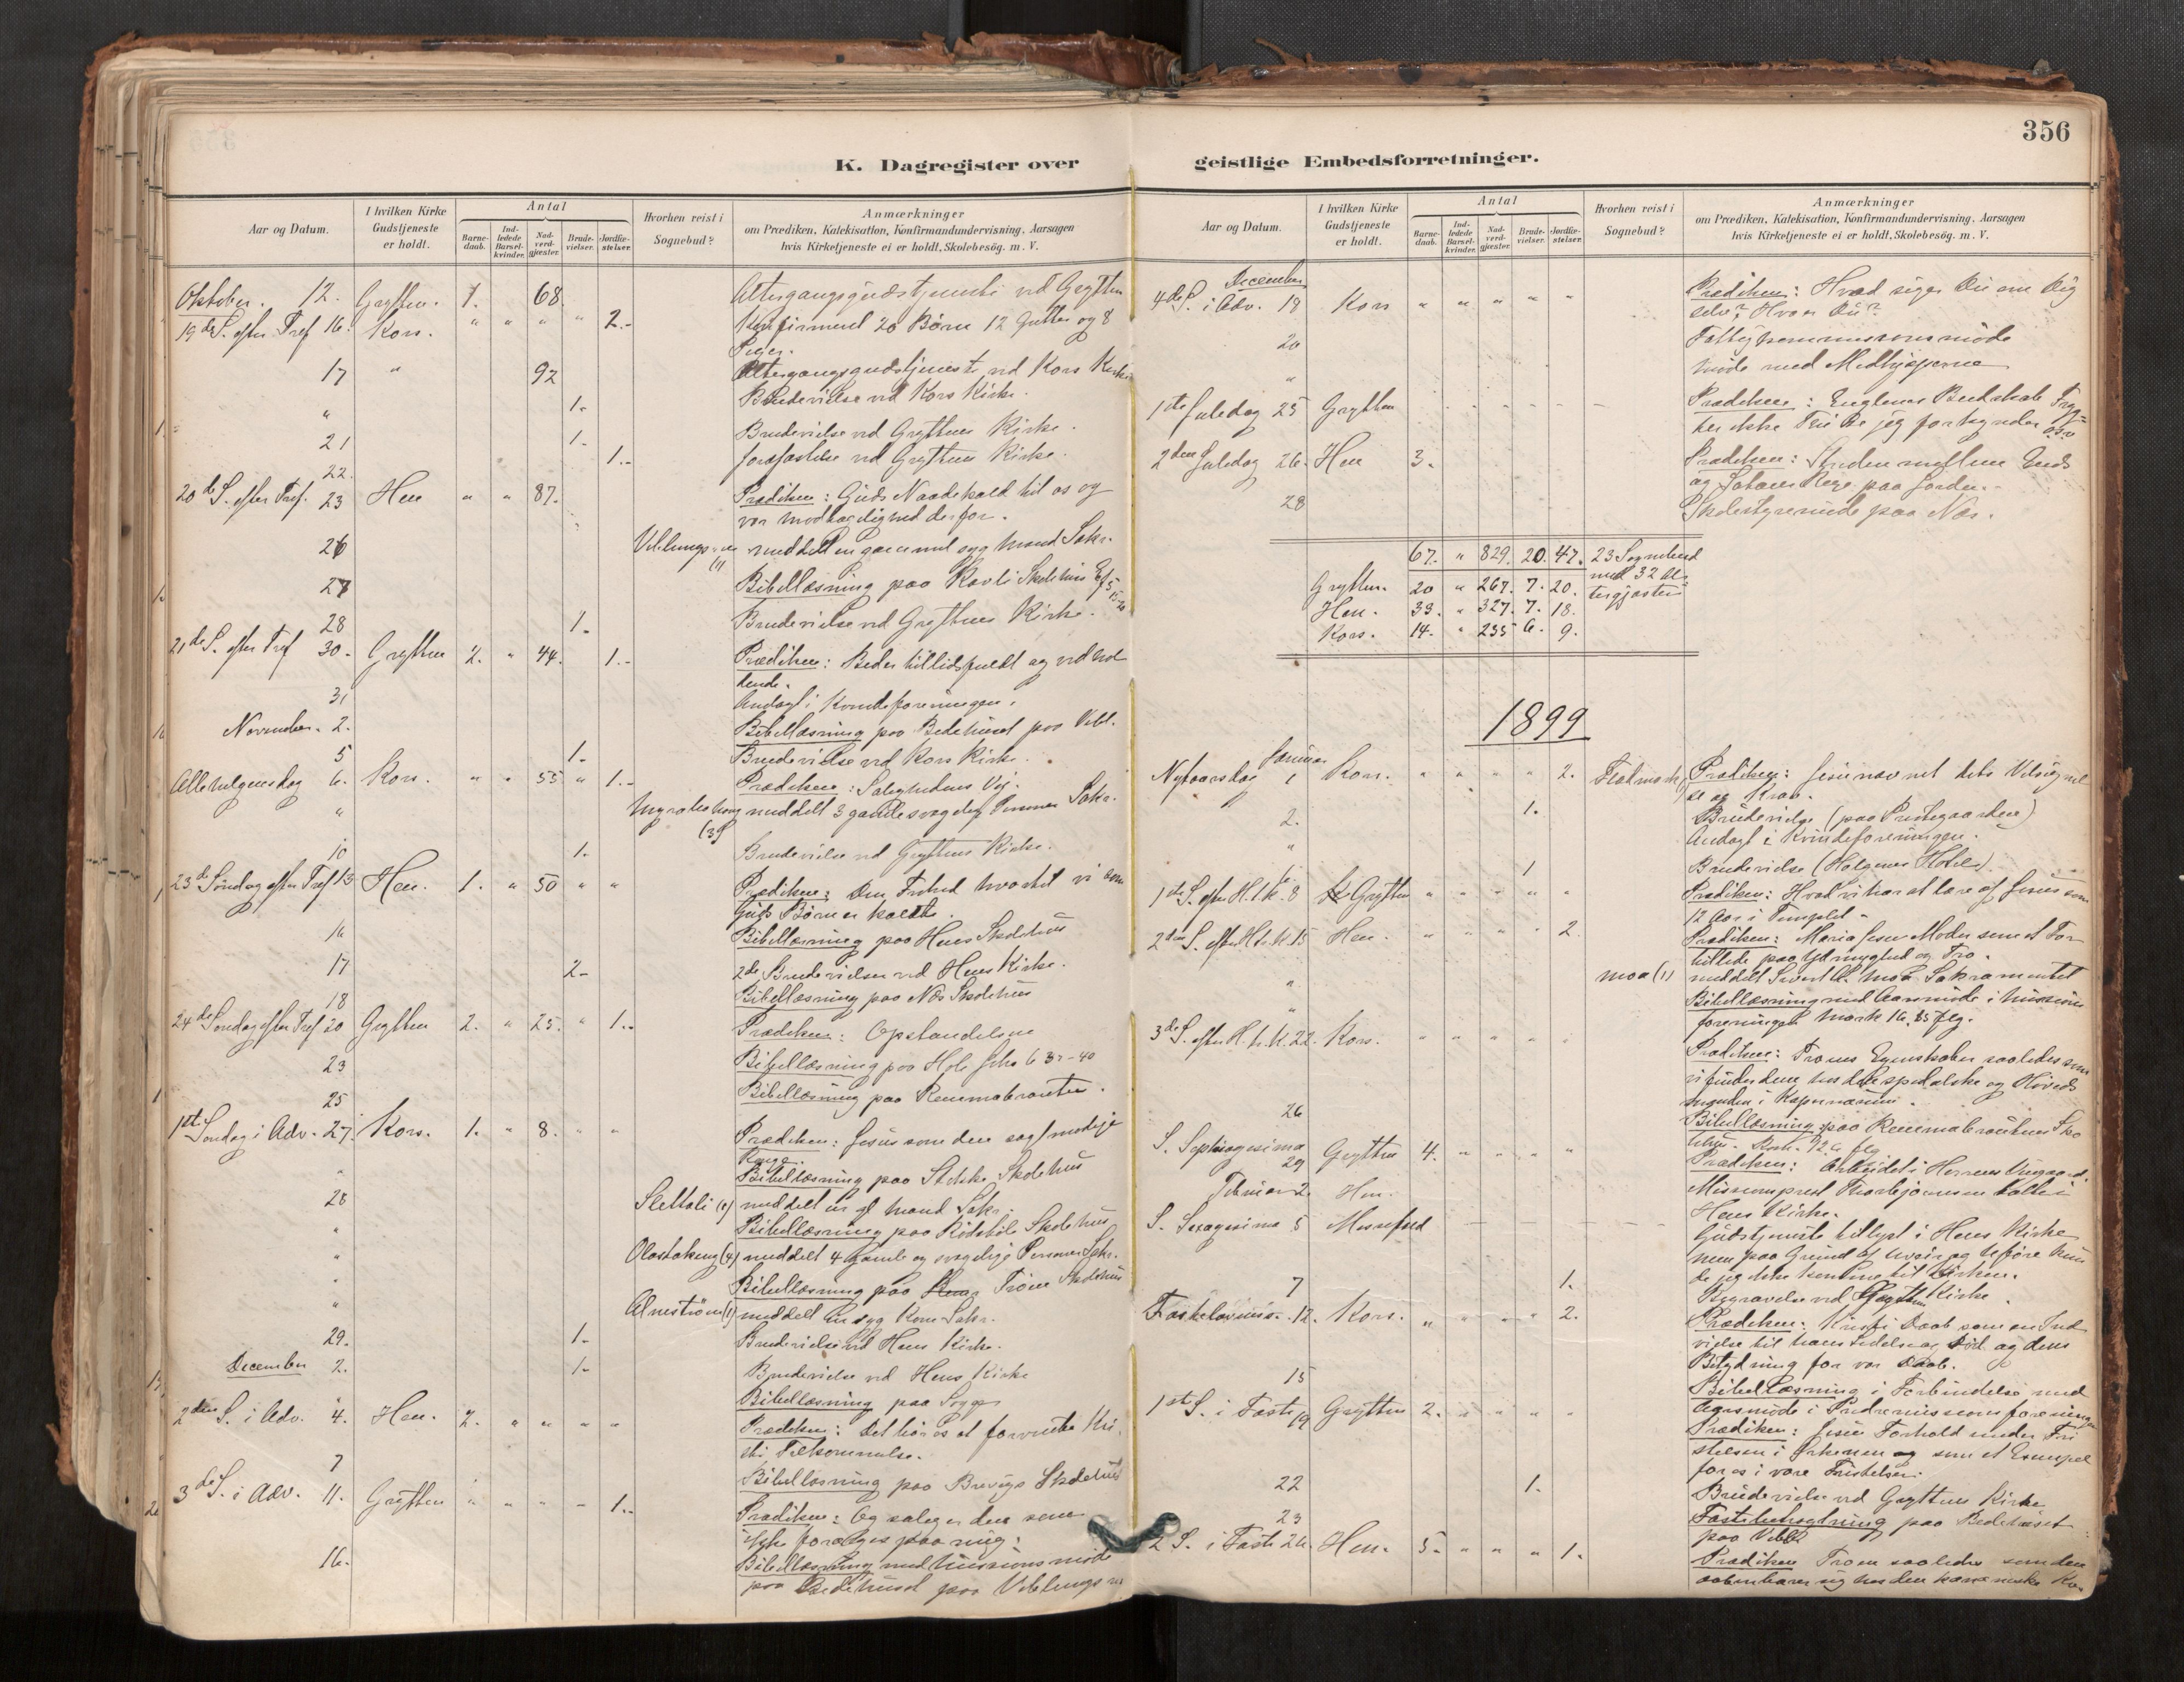 356
K. Dagregister over
Aar og Datum.
I hvilken Kirke Gudstjeneste er holdt.
Antal
Barnedaab.
Indledede Barselkvinder.
Nadverdgjæster.
Brudevielser.
Jordfæstelser.
Hvorhen reist i Sognebud?
Anmærkninger
om Prædiken, Katekisation, Konfirmandundervisning, Aarsagen
hvis Kirketjeneste ei er holdt, Skolebesøg. m. V.
Oktober. 12. Grytten. 1. 68. Altergangsgudstjeneste ved Grytten
19de S. efter Tref 16. Kors. " " " " 2.- Konfirmeret 20 Børn 12 Gutter og 8
Piger.
17 " 92 Altergangsgudstjeneste ved Kors Kirke
" 1.- Brudevielse ved Kors Kirke.
21 1.- Brudevielse ved Gryttens Kirke.
22. 1.- Jordfæstelse ved Gryttens Kirke.
20de S. efter Tref. 23 Hen " " 87. Prædiken: Guds Naadekald til os og
vor Modtagelighed derfor.
26 (1) meddelt en gammel syg Mand Sakr.
27 Bibellæsning paa Skolehus Ef 5 15-20
28 1.- Brudevielse ved Gryttens Kirke.
21de S. efter Tref 30. Grytten 2. " 44. 1.- Prædiken: Beder tillidsfuldt og vedhol
dende.
31 Andagt i Kvindeforeningen.
November. 2. Bibellæsning paa Bedehuset paa Vebl.
5 1.- Brudevielse ved Kors Kirke.
Allehelgensdag 6. Kors. " " 55 " 1.- Prædiken: Salighedens Vej.
" (3) meddelt 3 gamle svagelige Sakr.
10 1.- Brudevielse ved Gryttens Kirke.
23de Søndag efter Tref 13 Hen. 1. " 50 " " Prædiken: Den Frihed hvortil vi som
Guds Børn er kaldte.
16 Bibellæsning paa Hens Skolehus
17 2- 2de Brudevielser ved Hens Kirke.
18 Bibellæsning paa Næs Skolehus
24de Søndag efter Tref 20 Grytten 2. " 25. " 1.- Prædiken: Opstandelsen
23 Bibellæsning paa Hole Joh. 6 37-40
25 Bibellæsning paa
1ste Søndag i Adv. 27. Kors. 1. " 8. " " Prædiken: Jesus som den sagtmodige
Konge.
" Bibellæsning paa Skolehus
28 Slettali (1) meddelt en gl Mand Sakr.
" Bibellæsning paa Skolehus
" (4) meddelt 4 gamle og svagelige Personer Sakr.
" Bibellæsning paa Skolehus
" (1) meddelt en syg Kone Sakr.
29. 1.- Brudevielse ved Hens Kirke.
December 2. 1.- Brudevielse ved Hens Kirke
" Bibellæsning paa Sogge
2den S. i Adv. 4. Hen. 2. " " " " Prædiken: Det bør os at forvente Kri
sti Tilkommelse.
7 Bibellæsning paa Brevigs Skolehus
3de S. i Adv. 11. Grytten " " " " 1.- Prædiken: Og salig er den som
ikke forarges paa mig.
16. Bibellæsning med Missionsmøde
paa Bedehuset paa
geistlige Embedsforretninger.
Aar og Datum.
I hvilken Kirke Gudstjeneste er holdt.
Antal
Barnedaab.
Indledede Barselkvinder.
Nadverdgjæster.
Brudevielser.
Jordfæstelser.
Hvorhen reist i Sognebud?
Anmærkninger
om Prædiken, Katekisation, Konfirmandundervisning, Aarsagen
hvis Kirketjeneste ei er holdt, Skolebesøg. m. V.
December
4de S. i Adv. 18 Kors " " " " " Prædiken: Hvad siger Du om Dig
selv? Hvo er Du?
20 Fattigkommissionsmøde
" Møde med Medhjælperne
1ste Juledag 25 Grytten Prædiken: Englenes Budskab Fryg-
ter ikke Thi se jeg forkynder osv
2den Juledag 26. Hen 3. Prædiken: Striden mellem Guds
og Satans Rige paa Jorden.
28 Skolestyremøde paa Næs.
67. " 829. 20. 47. 23 Sognebud
med 32 Al-
tergjæster
Grytten. 20 " 267. 7. 20.
Hen. 33. " 327. 7. 18.
Kors. 14. " 235 6. 9.
1899
Januar
Nytaarsdag 1 Kors. " " " " 2. Prædiken: Jesu navnet dets Velsignel
se og Krav.
2. 1. Brudevielse (paa Prestegaarden)
" Andagt i Kvindeforeningen.
1 Brudevielse (Holgenes Hotel)
1ste S. efter H.t.K. 8 Grytten " " " " " Prædiken: Hvad vi har at lære af Jesus som
12 Aar i Templet.
2den S. efter H.t.K. 15 Hen. " " " " 2. Prædiken: Maria Jesu Moder som et For
billede paa Ydmyghed og Tro.
" Moa (1) meddelt Moa Sakramentet
" Bibellæsning med Aarsmøde i Missions
foreningen Mark 16. 15 flg.
3de S. efter H.t.K. 22. Kors. " " " " " Prædiken: Troens Egenskaber saaledes som
vi finder dem hos den spedalske og Høveds
manden i Kapernaum.
26 Bibellæsning paa Sko
lehus.
S. Septuagesima 29 Grytten 4. " " " " Prædiken: Arbeidet i Herrens Vingaard.
Februar 2. Hen. Missionsprest holdt i
Hens Kirke.
S. Sexagesima 5 Messefald Gudstjeneste tillyst i Hens Kirke
men paa Grund af Uveir og Uføre kun
de jeg ikke komme til Kirken.
7 1. Begravelse ved Grytten Kirke.
Fastelavnss. 12. Kors. " " " " 2. Prædiken: Kristi Daab som en Ind
vielse til hans Lidelse og Død og dens
Betydning for vor Daab.
15 Bibellæsning i Forbindelse med
Aarsmøde i Indremissionsforeningen
1ste S. i Faste 19 Grytten 2. " " " " Prædiken: Jesu Forhold under Fri
stelsen i Ørkenen og som et Exempel
for os i vore Fristelser.
22 1. Brudevielse ved Gryttens Kirke
23 Fastebetragtning paa Bedehuset
paa Vebl
2 S. i Faste 26. Hen. 5. " " " 1. Prædiken Troen saaledes som den
aabenbarer sig hos den kananæiske Kv